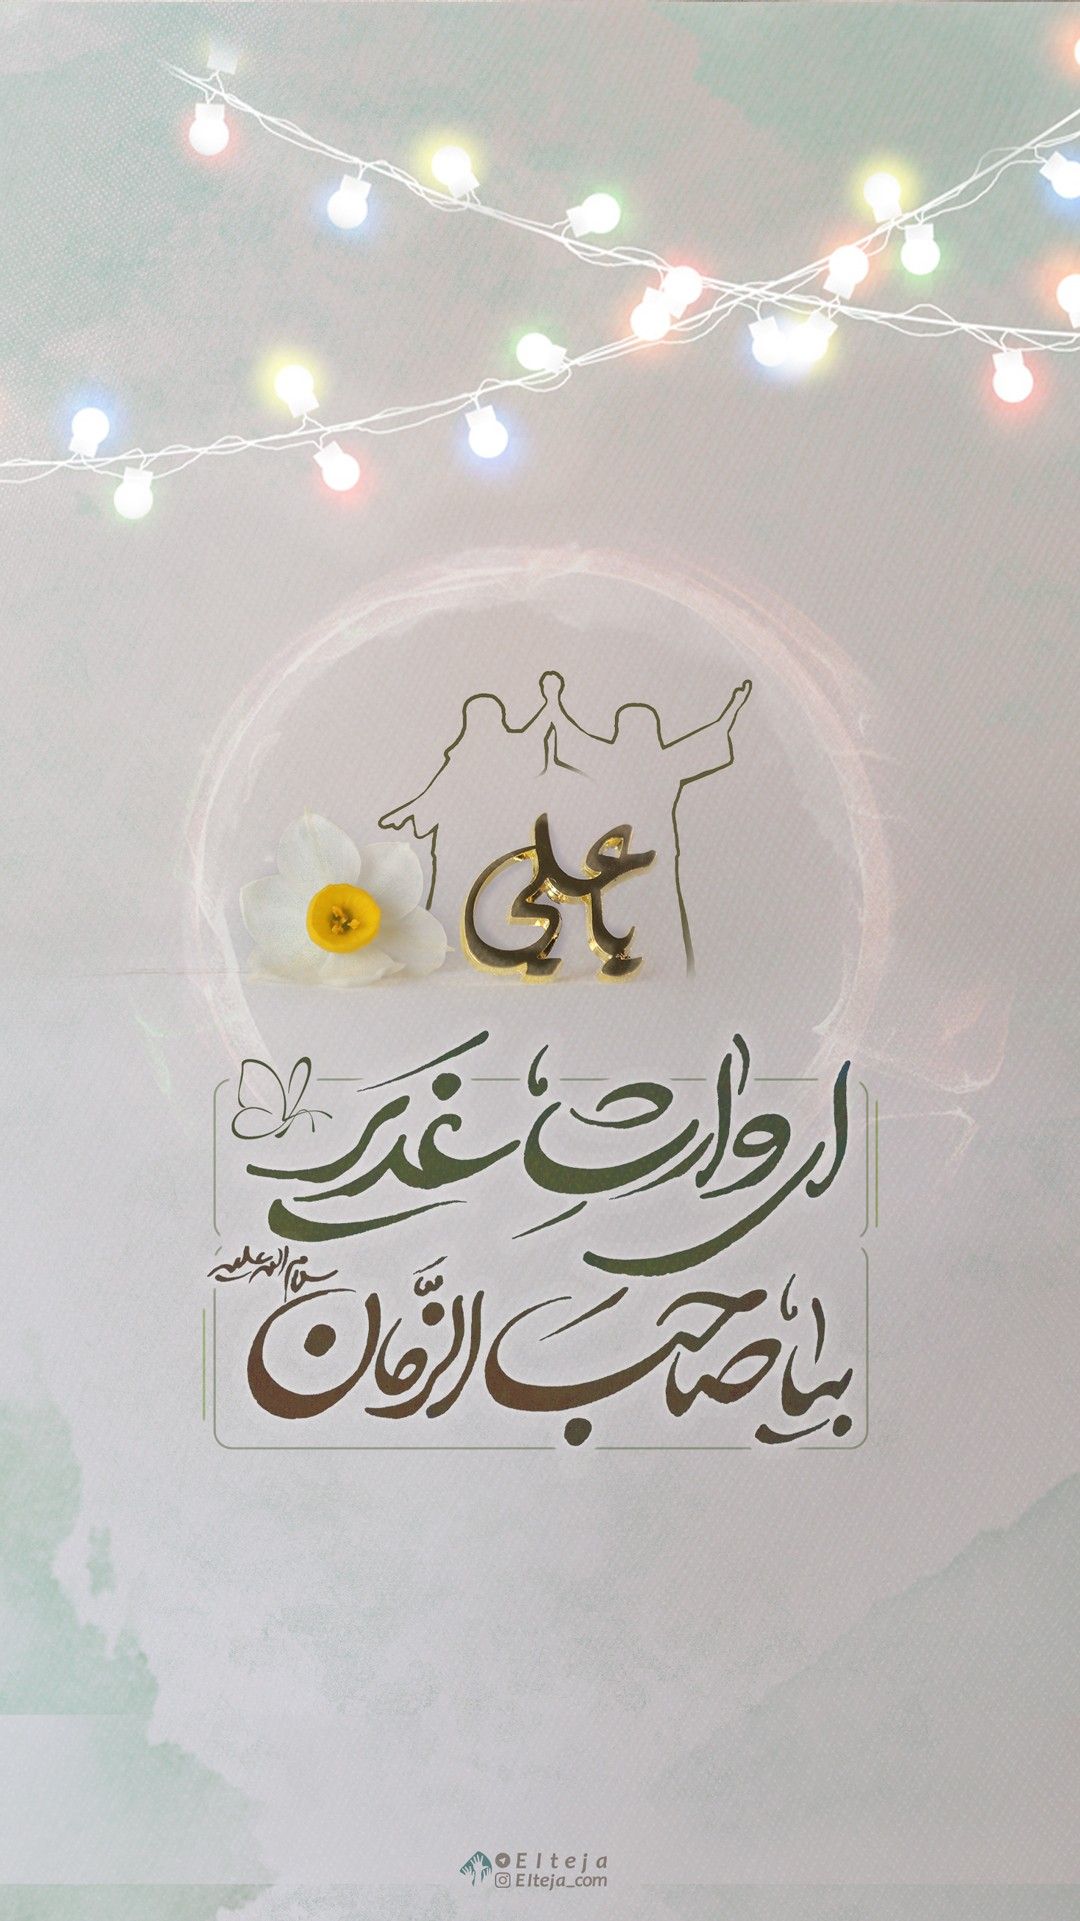 یا علی
ای وارثِ غدیر
بیا صاحبَ الزَّمان
سلام الله علیه
Elteja
Elteja_com